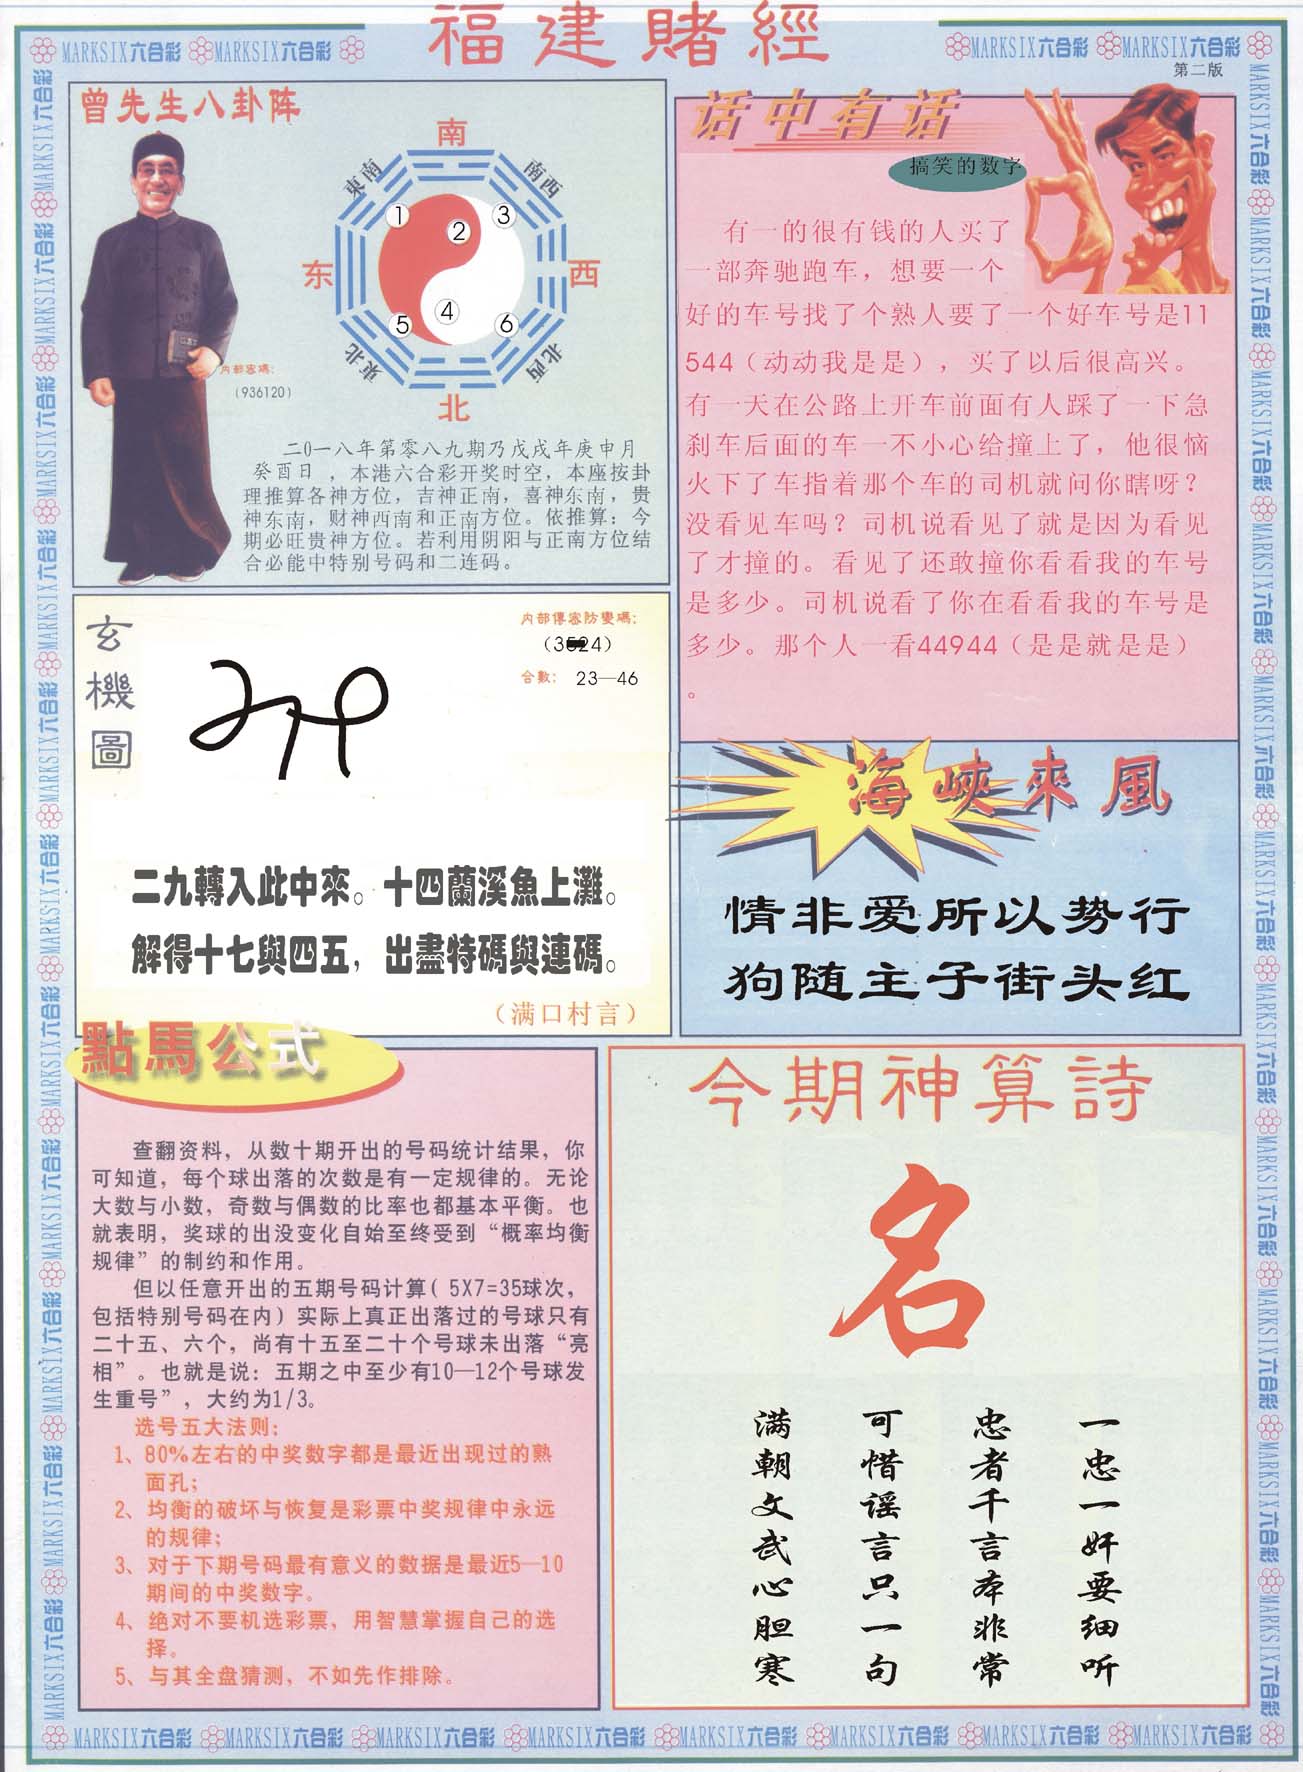 福建賭經
MARKSIX六合彩 MARKSIX六合彩
MARKSIX六合彩 MARKSIX六合彩
第二版
曾先生八卦阵
南
東南
南西
东
西
東北
北西
北
1
2
3
4
5
6
内部密碼:
(936120)
二0一八年第零八九期乃戊戌年庚申月
癸酉日，本港六合彩开奖时空，本座按卦
理推算各神方位，吉神正南，喜神东南，贵
神东南，财神西南和正南方位。依推算：今
期必旺贵神方位。若利用阴阳与正南方位结
合必能中特别号码和二连码。
话中有话
搞笑的数字
有一的很有钱的人买了
一部奔驰跑车，想要一个
好的车号找了个熟人要了一个好车号是11
544（动动我是是），买了以后很高兴。
有一天在公路上开车前面有人踩了一下急
刹车后面的车一不小心给撞上了，他很恼
火下了车指着那个车的司机就问你瞎呀？
没看见车吗？司机说看见了就是因为看见
了才撞的。看见了还敢撞你看看我的车号
是多少。司机说看了你在看看我的车号是
多少。那个人一看44944（是是就是是）
。
玄機圖
内部傳密防變碼:
合數: 23—46
二九轉入此中來。十四蘭溪魚上灘。
解得十七與四五，出盡特碼與連碼。
（满口村言）
海峽來風
情非爱所以势行
狗随主子街头红
點馬公式
查翻资料，从数十期开出的号码统计结果，你
可知道，每个球出落的次数是有一定规律的。无论
大数与小数，奇数与偶数的比率也都基本平衡。也
就表明，奖球的出没变化自始至终受到“概率均衡
规律”的制约和作用。
但以任意开出的五期号码计算( 5X7=35球次，
包括特别号码在内）实际上真正出落过的号球只有
二十五、六个，尚有十五至二十个号球未出落“亮
相”。也就是说：五期之中至少有10—12个号球发
生重号”，大约为1/3。
选号五大法则：
1、80%左右的中奖数字都是最近出现过的熟
面孔；
2、均衡的破坏与恢复是彩票中奖规律中永远
的规律；
3、对于下期号码最有意义的数据是最近5—10
期间的中奖数字。
4、绝对不要机选彩票，用智慧掌握自己的选
择。
5、与其全盘猜测，不如先作排除。
今期神算詩
名
一忠一奸要细听
忠者千言本非常
可惜谣言只一句
满朝文武心胆寒
MARKSIX六合彩 MARKSIX六合彩 MARKSIX六合彩 MARKSIX六合彩 MARKSIX六合彩 MARKSIX六合彩 MARKSIX六合彩 MARKSIX六合彩